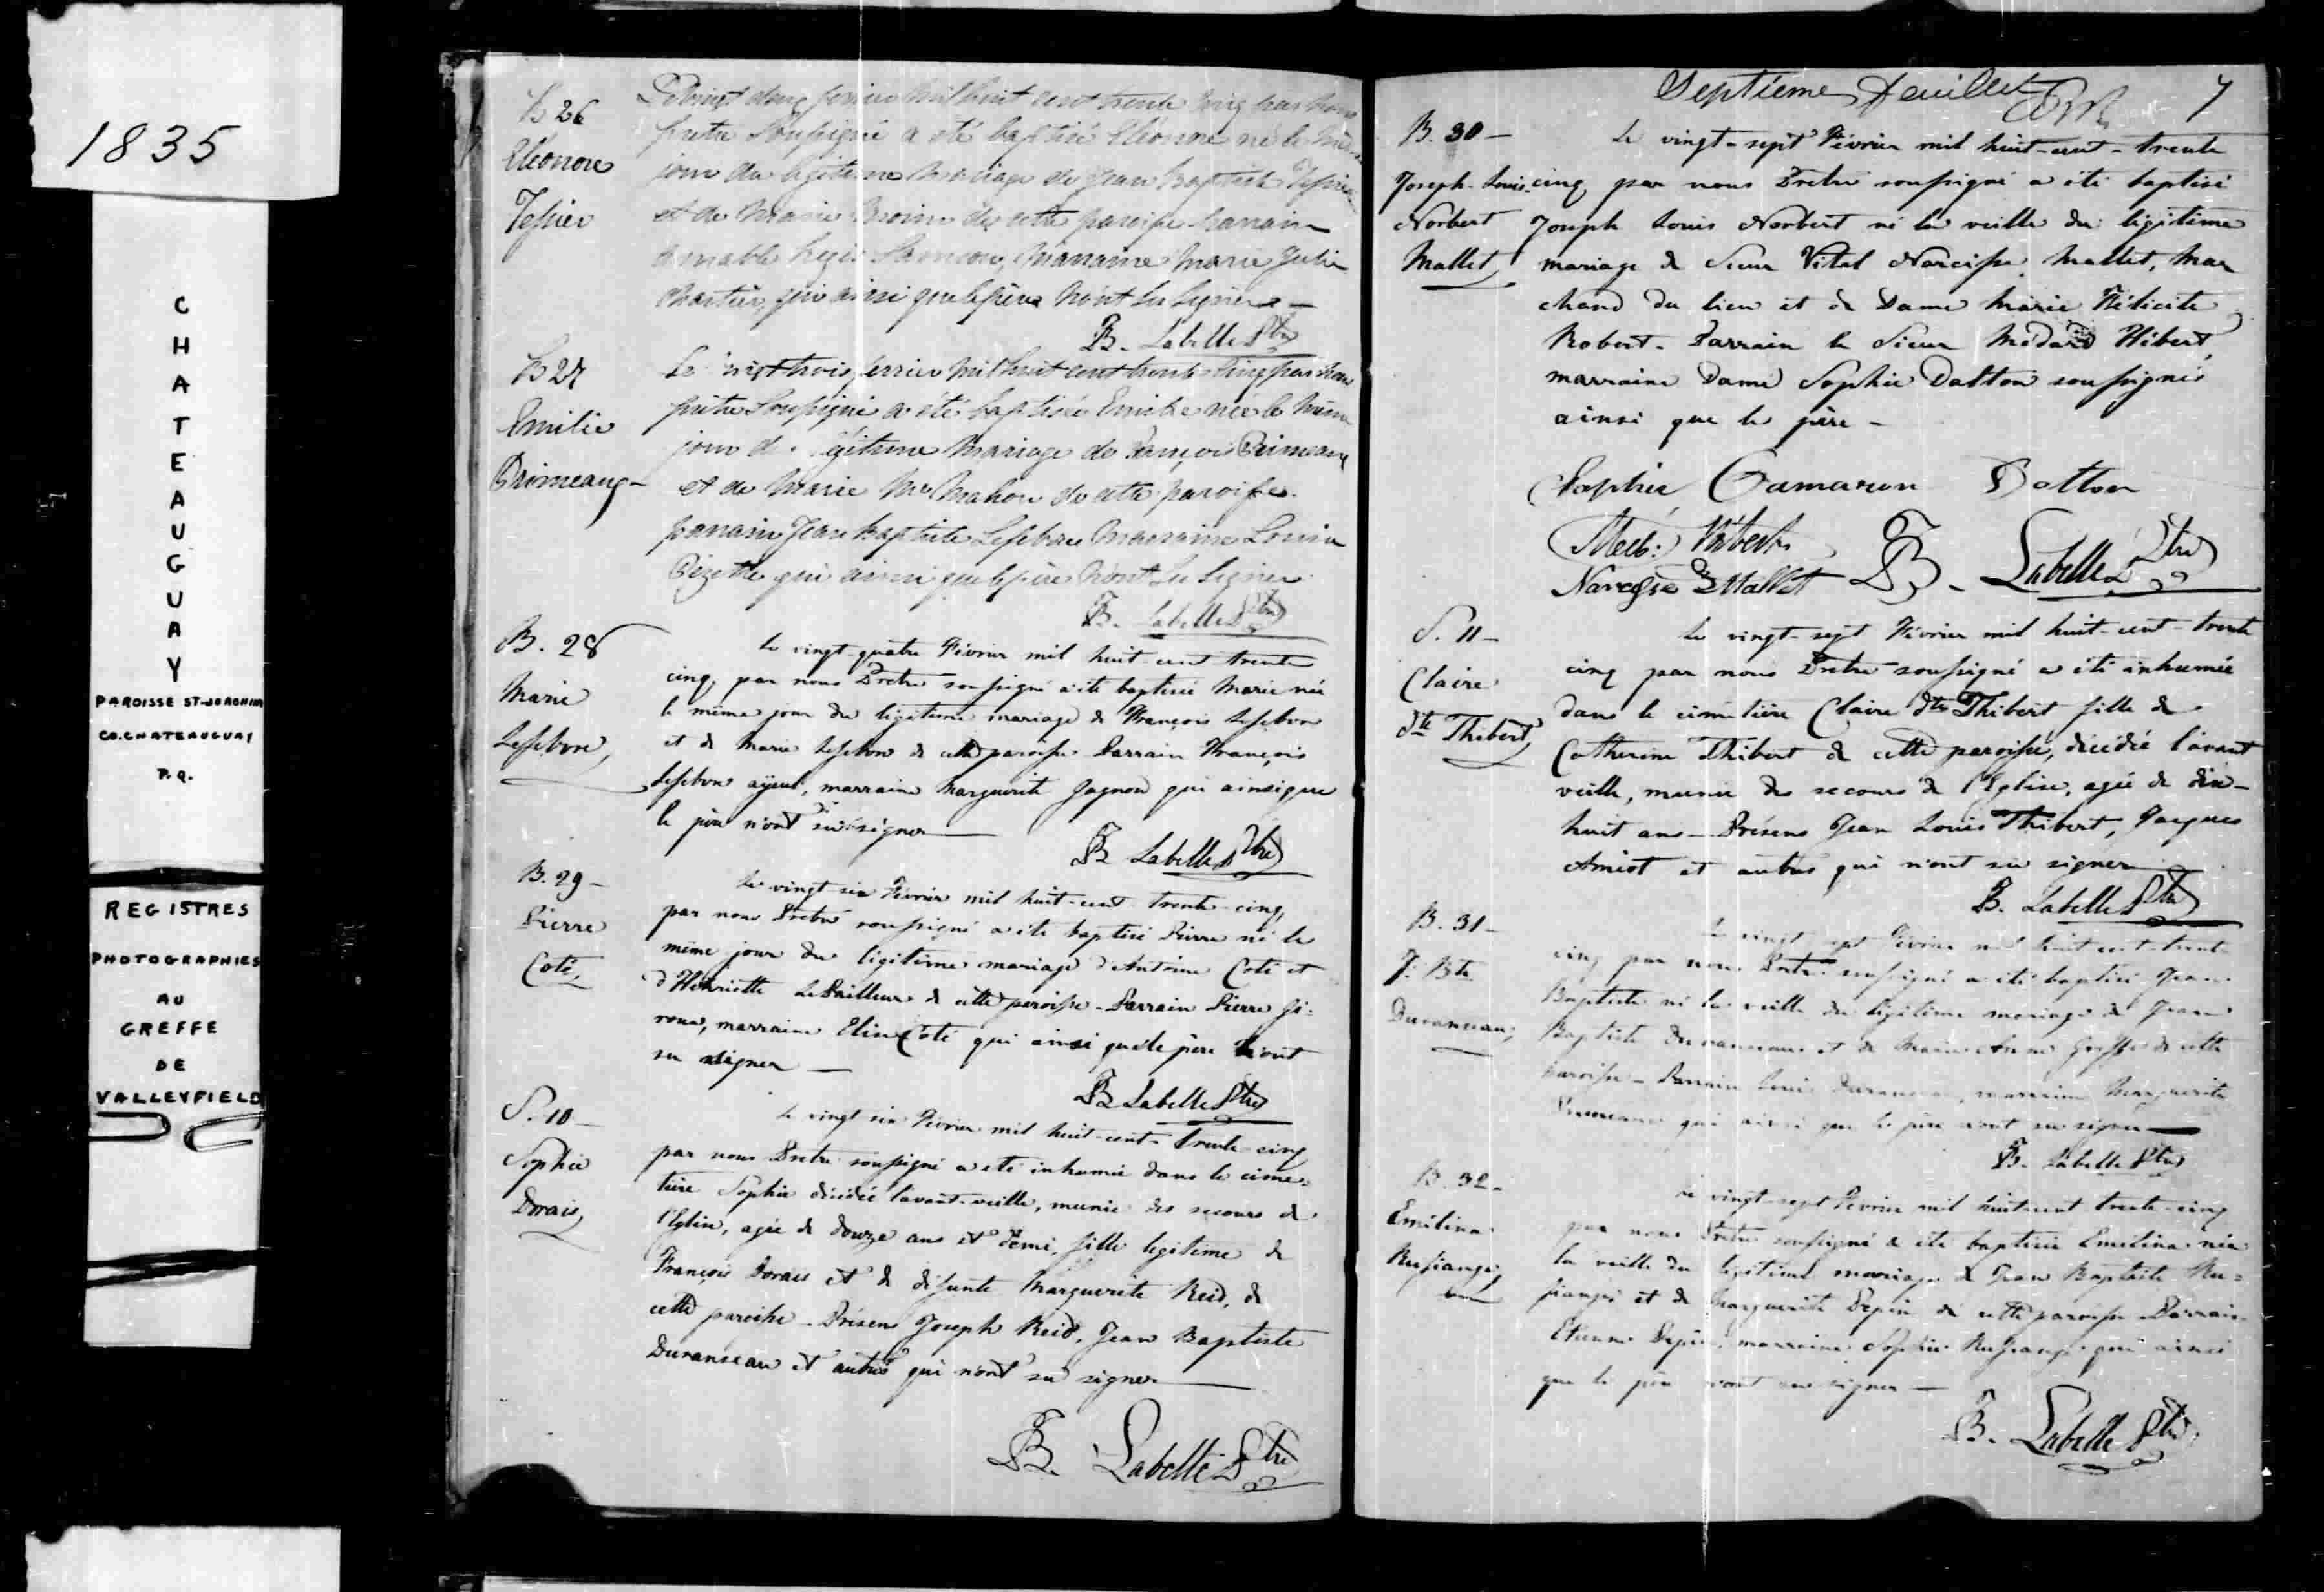 1835
CHATEAUGUAY
PAROISSE ST-JOACHIM
CO. CHATEAUGUAY
P.Q.
REGISTRES
PHOTOGRAPHIES
AU
GREFFE
DE
VALLEYFIELD
B 26
Eléonore
Tessier
Le vingt deux fevrier mil huit cent trente cinq par nous
prêtre soussigné a été baptisé Eléonore né le même
jour du légitime mariage de Jean Baptiste Tessier
et de Marie de cette paroisse parrain
amable marraine Marie Julie
Chartier, qui ainsi que le père n'ont su signer —
B. Labelle Ptre
B 27
Emilie
Primeaux
Le vingt trois fevrier mil huit cent trente cinq par nous
prêtre soussigné a été baptisée Emilie née le même
jour du légitime mariage de François Primeaux
et de Marie McMahon de cette paroisse.
parrain Jean Baptiste Lefebvre marraine Louise
qui ainsi que le père n'ont su signer
B. Labelle Ptre
B. 28
Marie
Lefebvre
Le vingt-quatre Février mil huit-cent trente
cinq, par nous Prêtre soussigné a été baptisée Marie née
le même jour du légitime mariage de François Lefebvre
et de Marie Lefebvre de cette paroisse. Parrain François
Lefebvre ayeul, marraine Marguerite Gagnon qui ainsi que
le père n'ont su signer —
B Labelle Ptre
B. 29 —
Pierre
Coté
Le vingt six Février mil huit-cent trente-cinq,
par nous Prêtre soussigné a été baptisé Pierre né le
même jour du légitime mariage d'Antoine Coté et
d'Henriette LeBailleur de cette paroisse - Parrain Pierre Gi-
roux, marraine Elise Coté qui ainsi que le père n'ont
su signer —
B Labelle Ptre
S. 10 —
Sophie
Dorais
Le vingt six Février mil huit-cent-trente-cinq
par nous Prêtre soussigné a été inhumée dans le cime-
tière Sophie décédée l'avant-veille, munie des secours de
l'Eglise, agée de douze ans et demi, fille légitime de
François Dorais et de défunte Marguerite Reid, de
cette paroisse - Présens Joseph Reid, Jean Baptiste
Duranseau et autres qui n'ont su signer —
B. Labelle Ptre
Septième feuillet 7
B. 30 —
Joseph-Louis-
Norbert
Mallet
Le vingt-sept Février mil huit-cent-trente
cinq par nous Prêtre soussigné a été baptisé
Joseph Louis Norbert né la veille du légitime
mariage de Sieur Vital Narcisse Mallet, Mar
chand du lieu et de Dame Marie Félicité
Robert. Parrain le Sieur Médard Hébert,
marraine Dame Sophie Dalton soussignés
ainsi que le père —
Sophie Camaron Dalton
Med: Hébert
Narcisse Mallet B. Labelle Ptre
S. 11 —
Claire
dte Thibert
Le vingt-sept Février mil huit-cent-trente
cinq par nous Prêtre soussigné a été inhumée
dans le cimetière Claire dte Thibert fille de
Catherine Thibert de cette paroisse, décédée l'avant
veille, munie des secours de l'Eglise, agée de dix-
huit ans - Présens Jean Louis Thibert, Jacques
Amiot et autres qui n'ont su signer
B. Labelle Ptre
B. 31 —
J. Bte
Duranseau
Le vingt sept Février mil huit-cent-trente
cinq par nous Prêtre soussigné a été baptisé Jean
Baptiste né la veille du légitime mariage de Jean
Baptiste Duranseau et de Marie Anne de cette
paroisse - Parrain Louis Duranseau, marraine Marguerite
qui ainsi que le père n'ont su signer —
B. Labelle Ptre
B. 32 —
Emélina
Le vingt-sept Février mil huit-cent trente-cinq
par nous Prêtre soussigné a été baptisée Emélina née
la veille du légitime mariage de Jean Baptiste
et de Marguerite Pepin de cette paroisse - Parrain
Etienne Pepin, marraine Sophie qui ainsi
que le père n'ont su signer —
B. Labelle Ptre